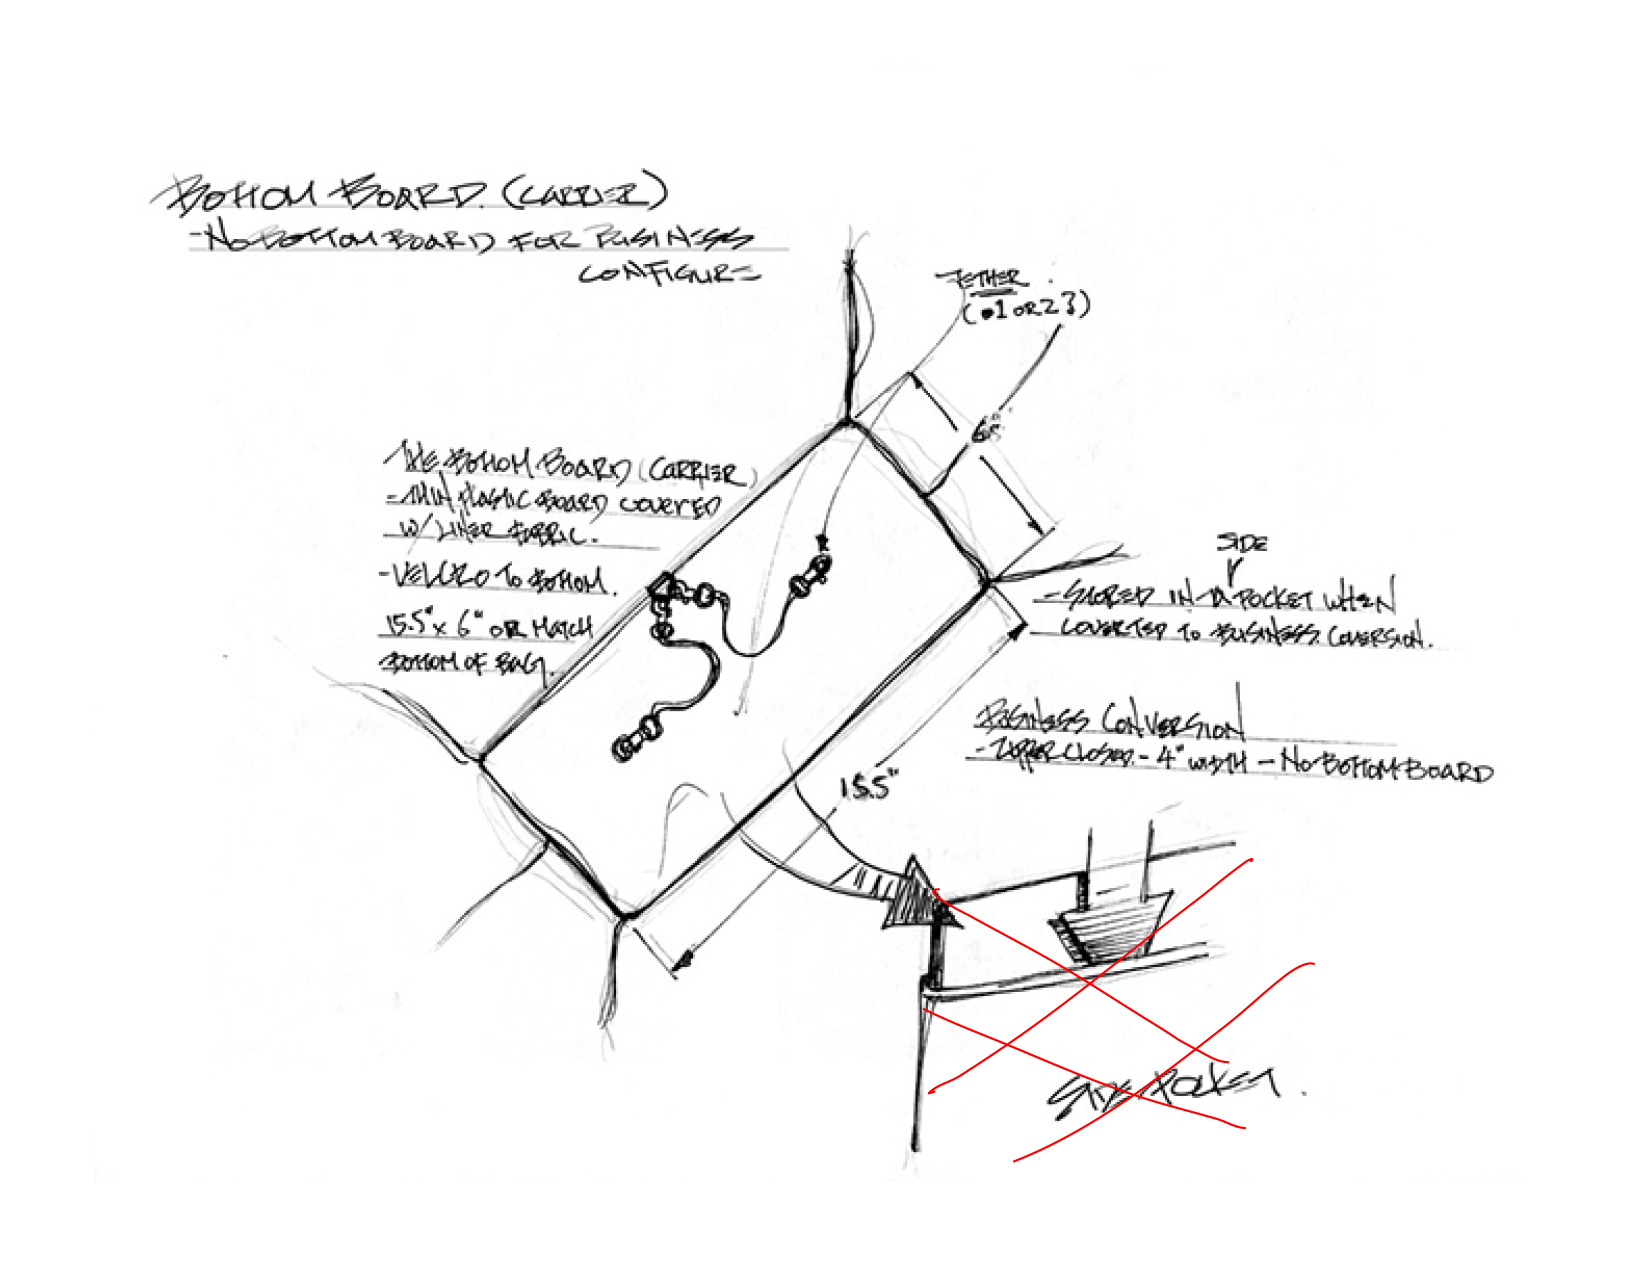 BOTTOM BOARD. (CARRIER)
- NO BOTTOM BOARD FOR BUSINESS
CONFIGURE
TETHER.
(1 OR 2?)
6"
THE BOTTOM BOARD (CARRIER)
- THIN PLASTIC BOARD COVERED
W/ LINER FABRIC.
- VELCRO TO BOTTOM.
15.5" x 6" OR MATCH
BOTTOM OF BAG.
SIDE
- STORED IN A POCKET WHEN
COVERTED TO BUSINESS COVERSION.
BUSINESS CONVERSION
- ZIPPER CLOSED - 4" WIDTH - NO BOTTOM BOARD
15.5"
SIDE POCKET.